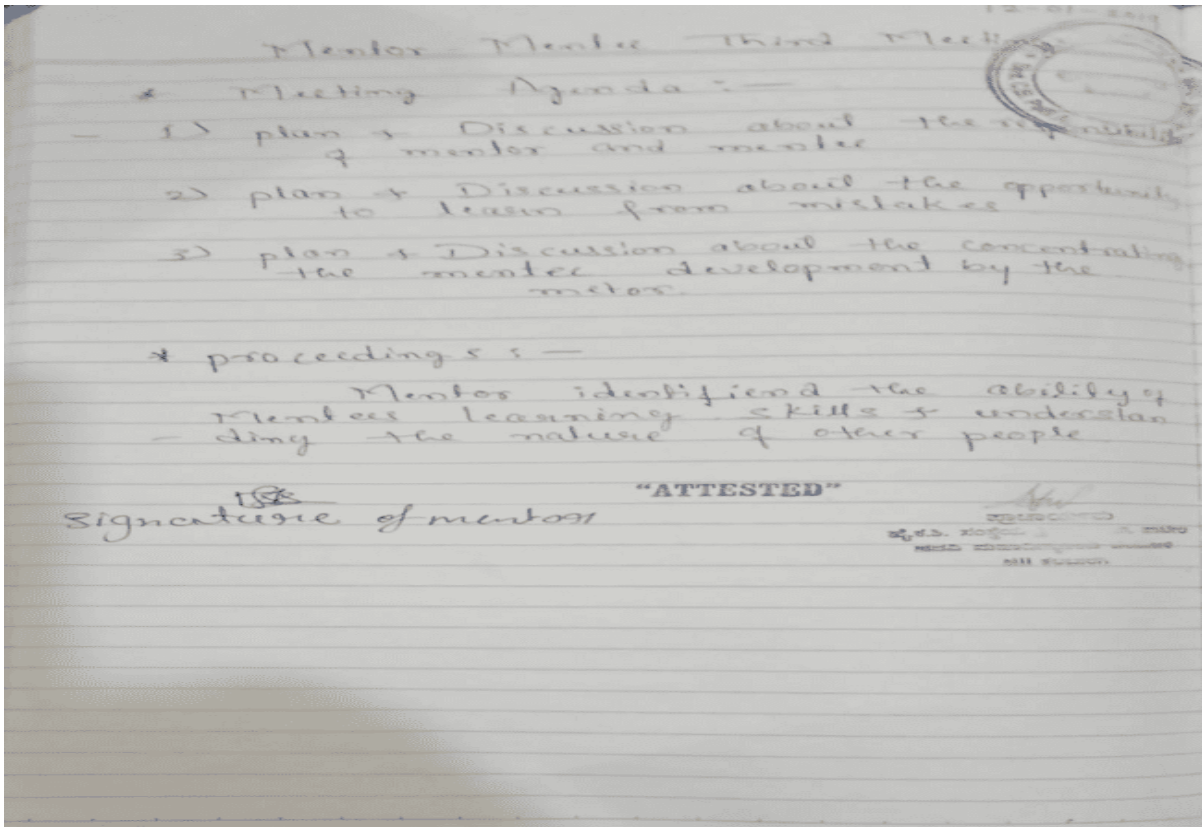 12-01-2019
Mentor Mentee Third Meeti
* Meeting Agenda :-
1) plan & Discussion about the
of mentor and mentee
2) plan & Discussion about the opportunity
to learn from mistakes
3) plan & Discussion about the concentrating
the mentee development by the
metor.
* proceedings :-
Mentor identifiend the ability of
Mentees learning skills & understan
- ding the nature of other people
"ATTESTED"
Signature of mentor